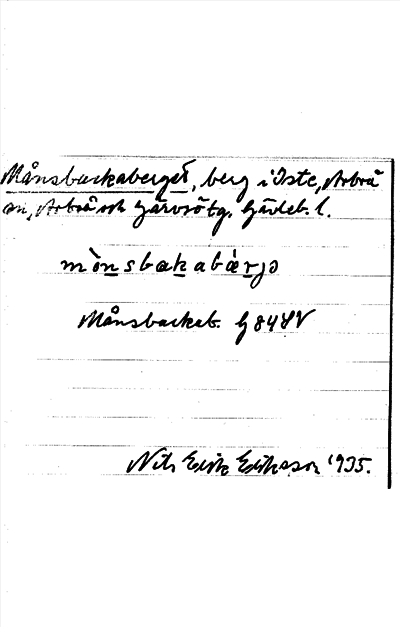 Månsbackaberget, berg i Iste, Arbrå
sn, Arbrå och Järvsö tg. Gävleb. l.
mònsbakabærjə
Månsbackab. G 84 SV
Nils Erik Eriksson 1935.